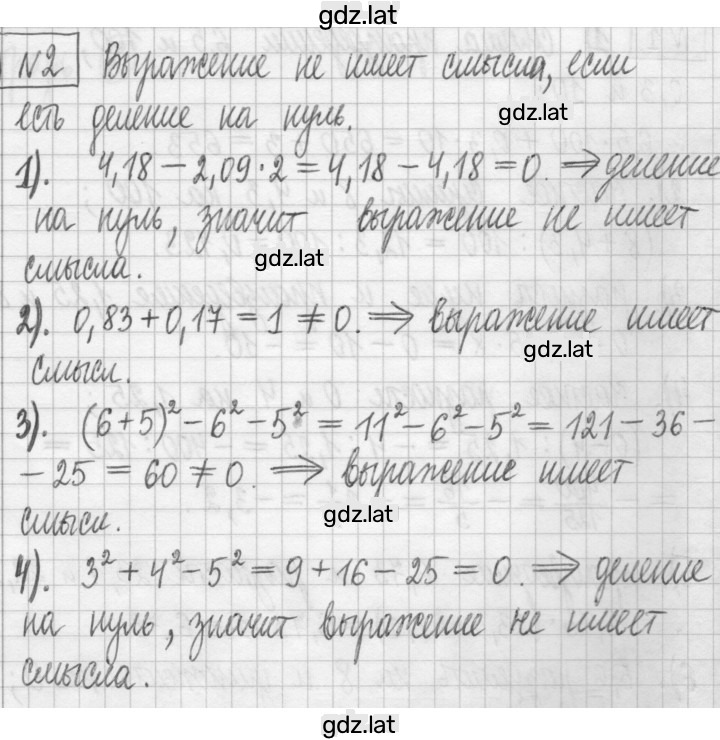 gdz.lat
№2 Выражение не имеет смысла, если
есть деление на нуль.
gdz.lat
1). 4,18 - 2,09·2 = 4,18 - 4,18 = 0. ⟹ деление
на нуль, значит выражение не имеет
смысла.
gdz.lat
2). 0,83 + 0,17 = 1 ≠ 0. ⟹ выражение имеет
смысл.
gdz.lat
3). (6+5)² - 6² - 5² = 11² - 6² - 5² = 121 - 36 -
- 25 = 60 ≠ 0. ⟹ выражение имеет
смысл.
gdz.lat
4). 3² + 4² - 5² = 9 + 16 - 25 = 0. ⟹ деление
на нуль, значит выражение не имеет
смысла.
gdz.lat